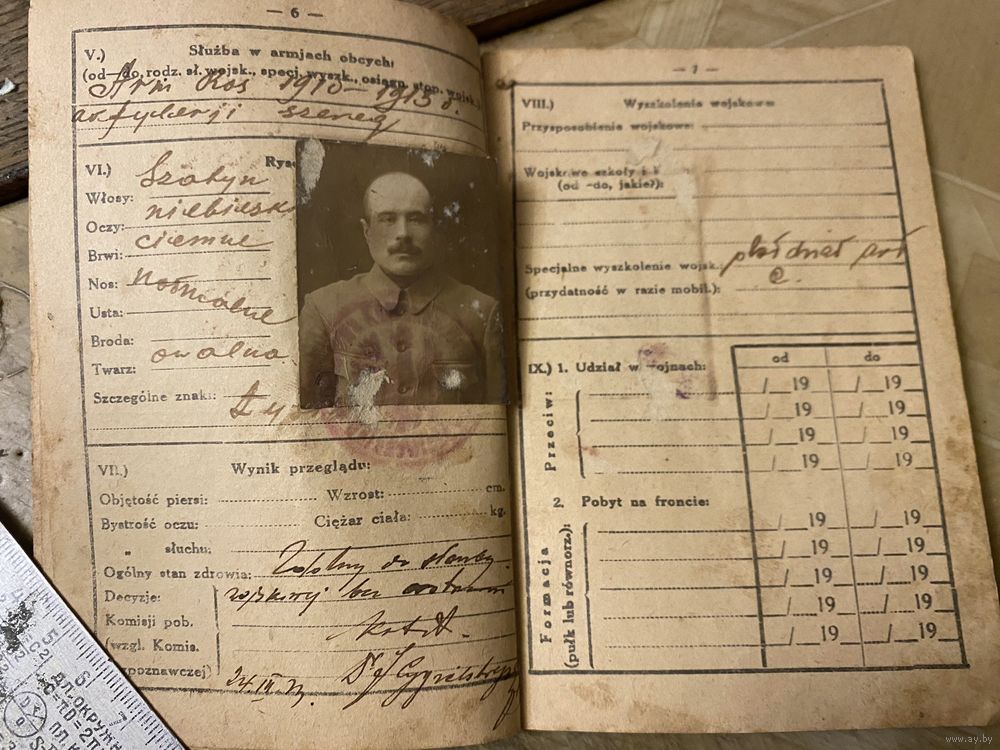 — 6 —
V.) Służba w armjach obcych:
(od—do, rodz. sł. wojsk., specj. wyszk., osiągn. stop. wojsk.)
Arm Ros 1910 – 1915 r.
artylerji szereg
VI.)
Włosy: Szatyn
Oczy: niebiesk
Brwi: ciemne
Nos:
Usta: normalne
Broda:
Twarz: owalna
Szczególne znaki:
VII.) Wynik przeglądu:
Objętość piersi: Wzrost: cm.
Bystrość oczu: Ciężar ciała: kg.
„ słuchu:
Ogólny stan zdrowia: Zdolny do służby
Decyzje: wojskowej bez
Komisji pob.
(wzgl. Komis.
poznawczej)
— 7 —
VIII.) Wyszkolenie wojskowe
Przysposobienie wojskowe:
Wojskowe szkoły i
(od -do, jakie?):
Specjalne wyszkolenie wojsk.
(przydatność w razie mobil.):
IX.) 1. Udział w wojnach:
od do
Przeciw:
/ 19 / 19
/ 19 / 19
/ 19 / 19
/ 19 / 19
2. Pobyt na froncie:
Formacja
(pułk lub równorz.):
/ 19 / 19
/ 19 / 19
/ 19 / 19
/ 19 / 19
/ 19 / 19
ДЛ.ОКРУЖН
C=πD=2π
www.ay.by